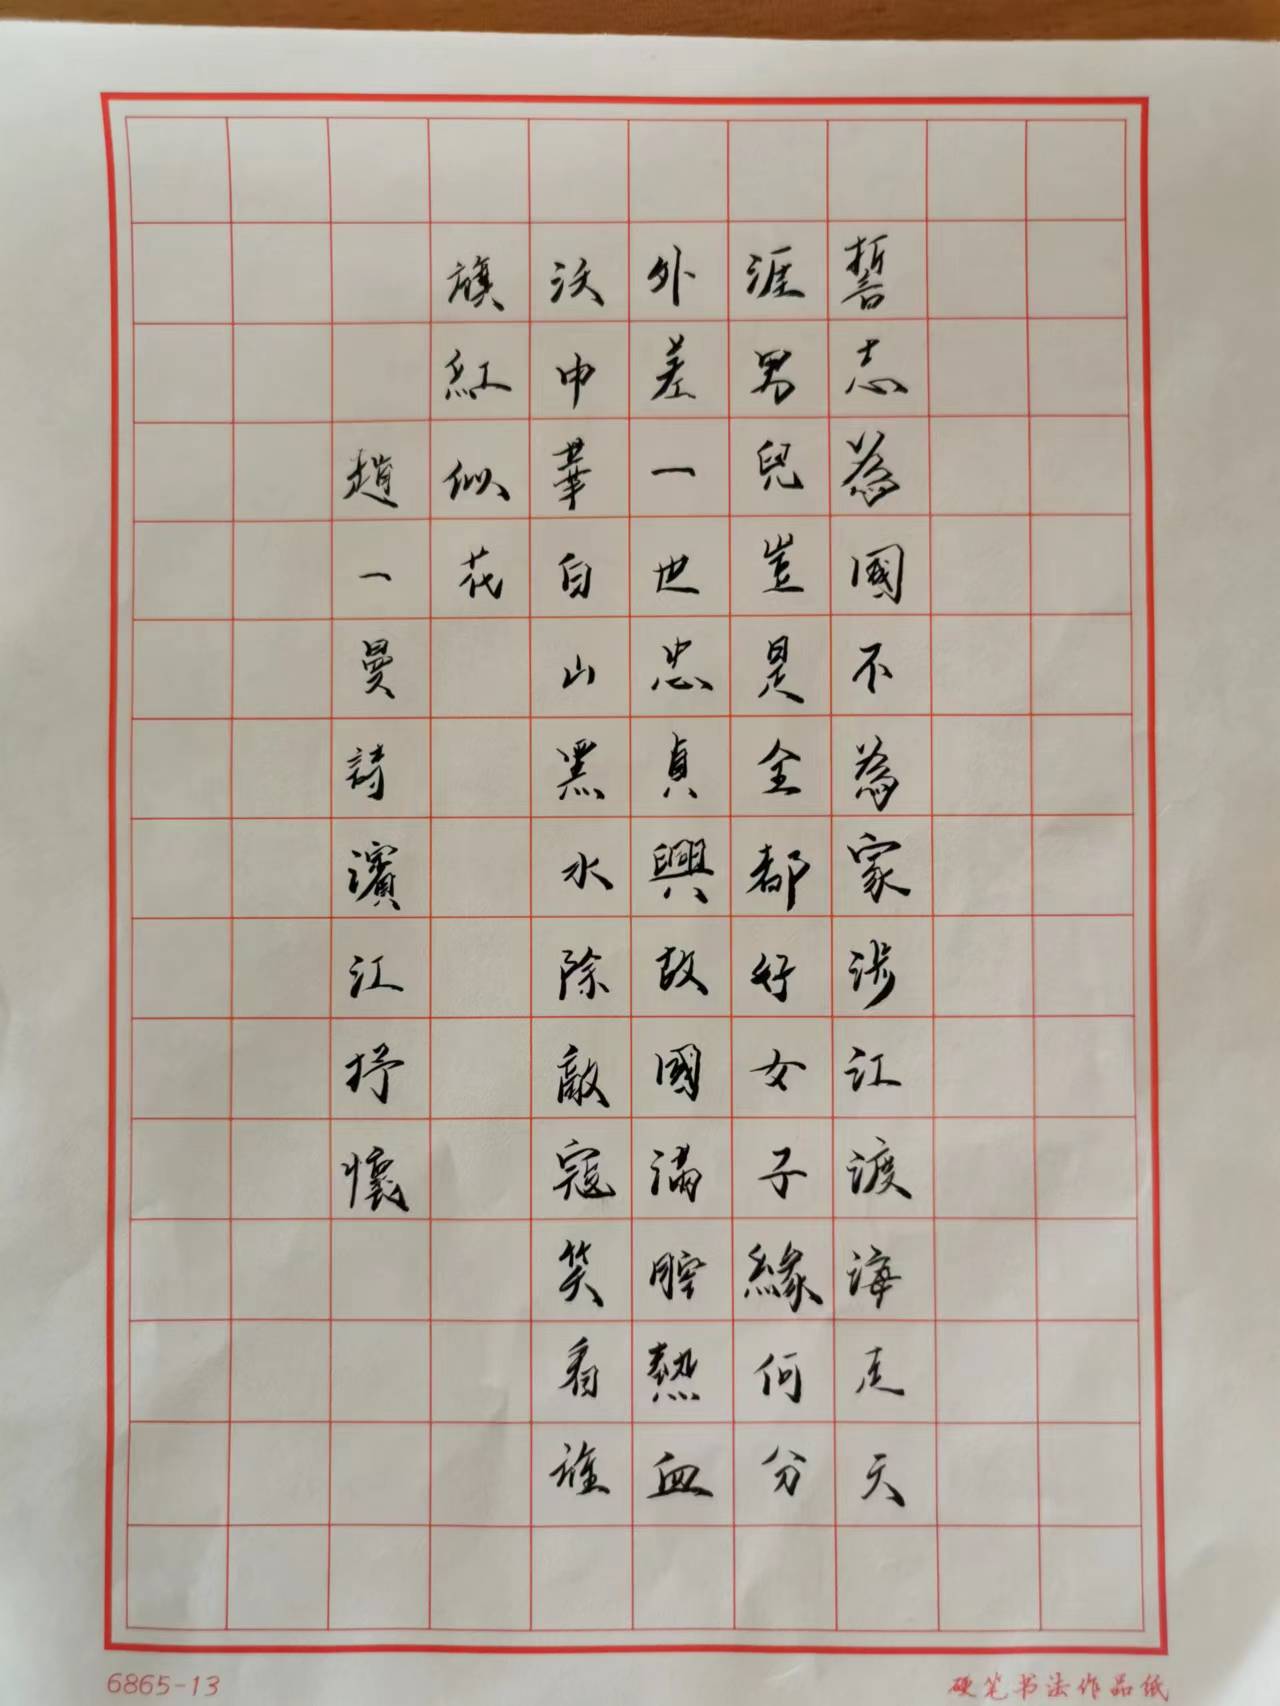 誓志為國不為家渉江渡海走天
涯男兒豈是全都好女子緣何分
外差一世忠貞興故國滿腔熱血
沃中華白山黑水除敵寇笑看誰
旗紅似花
趙一曼詩濱江抒懷
6865-13
硬笔书法作品纸